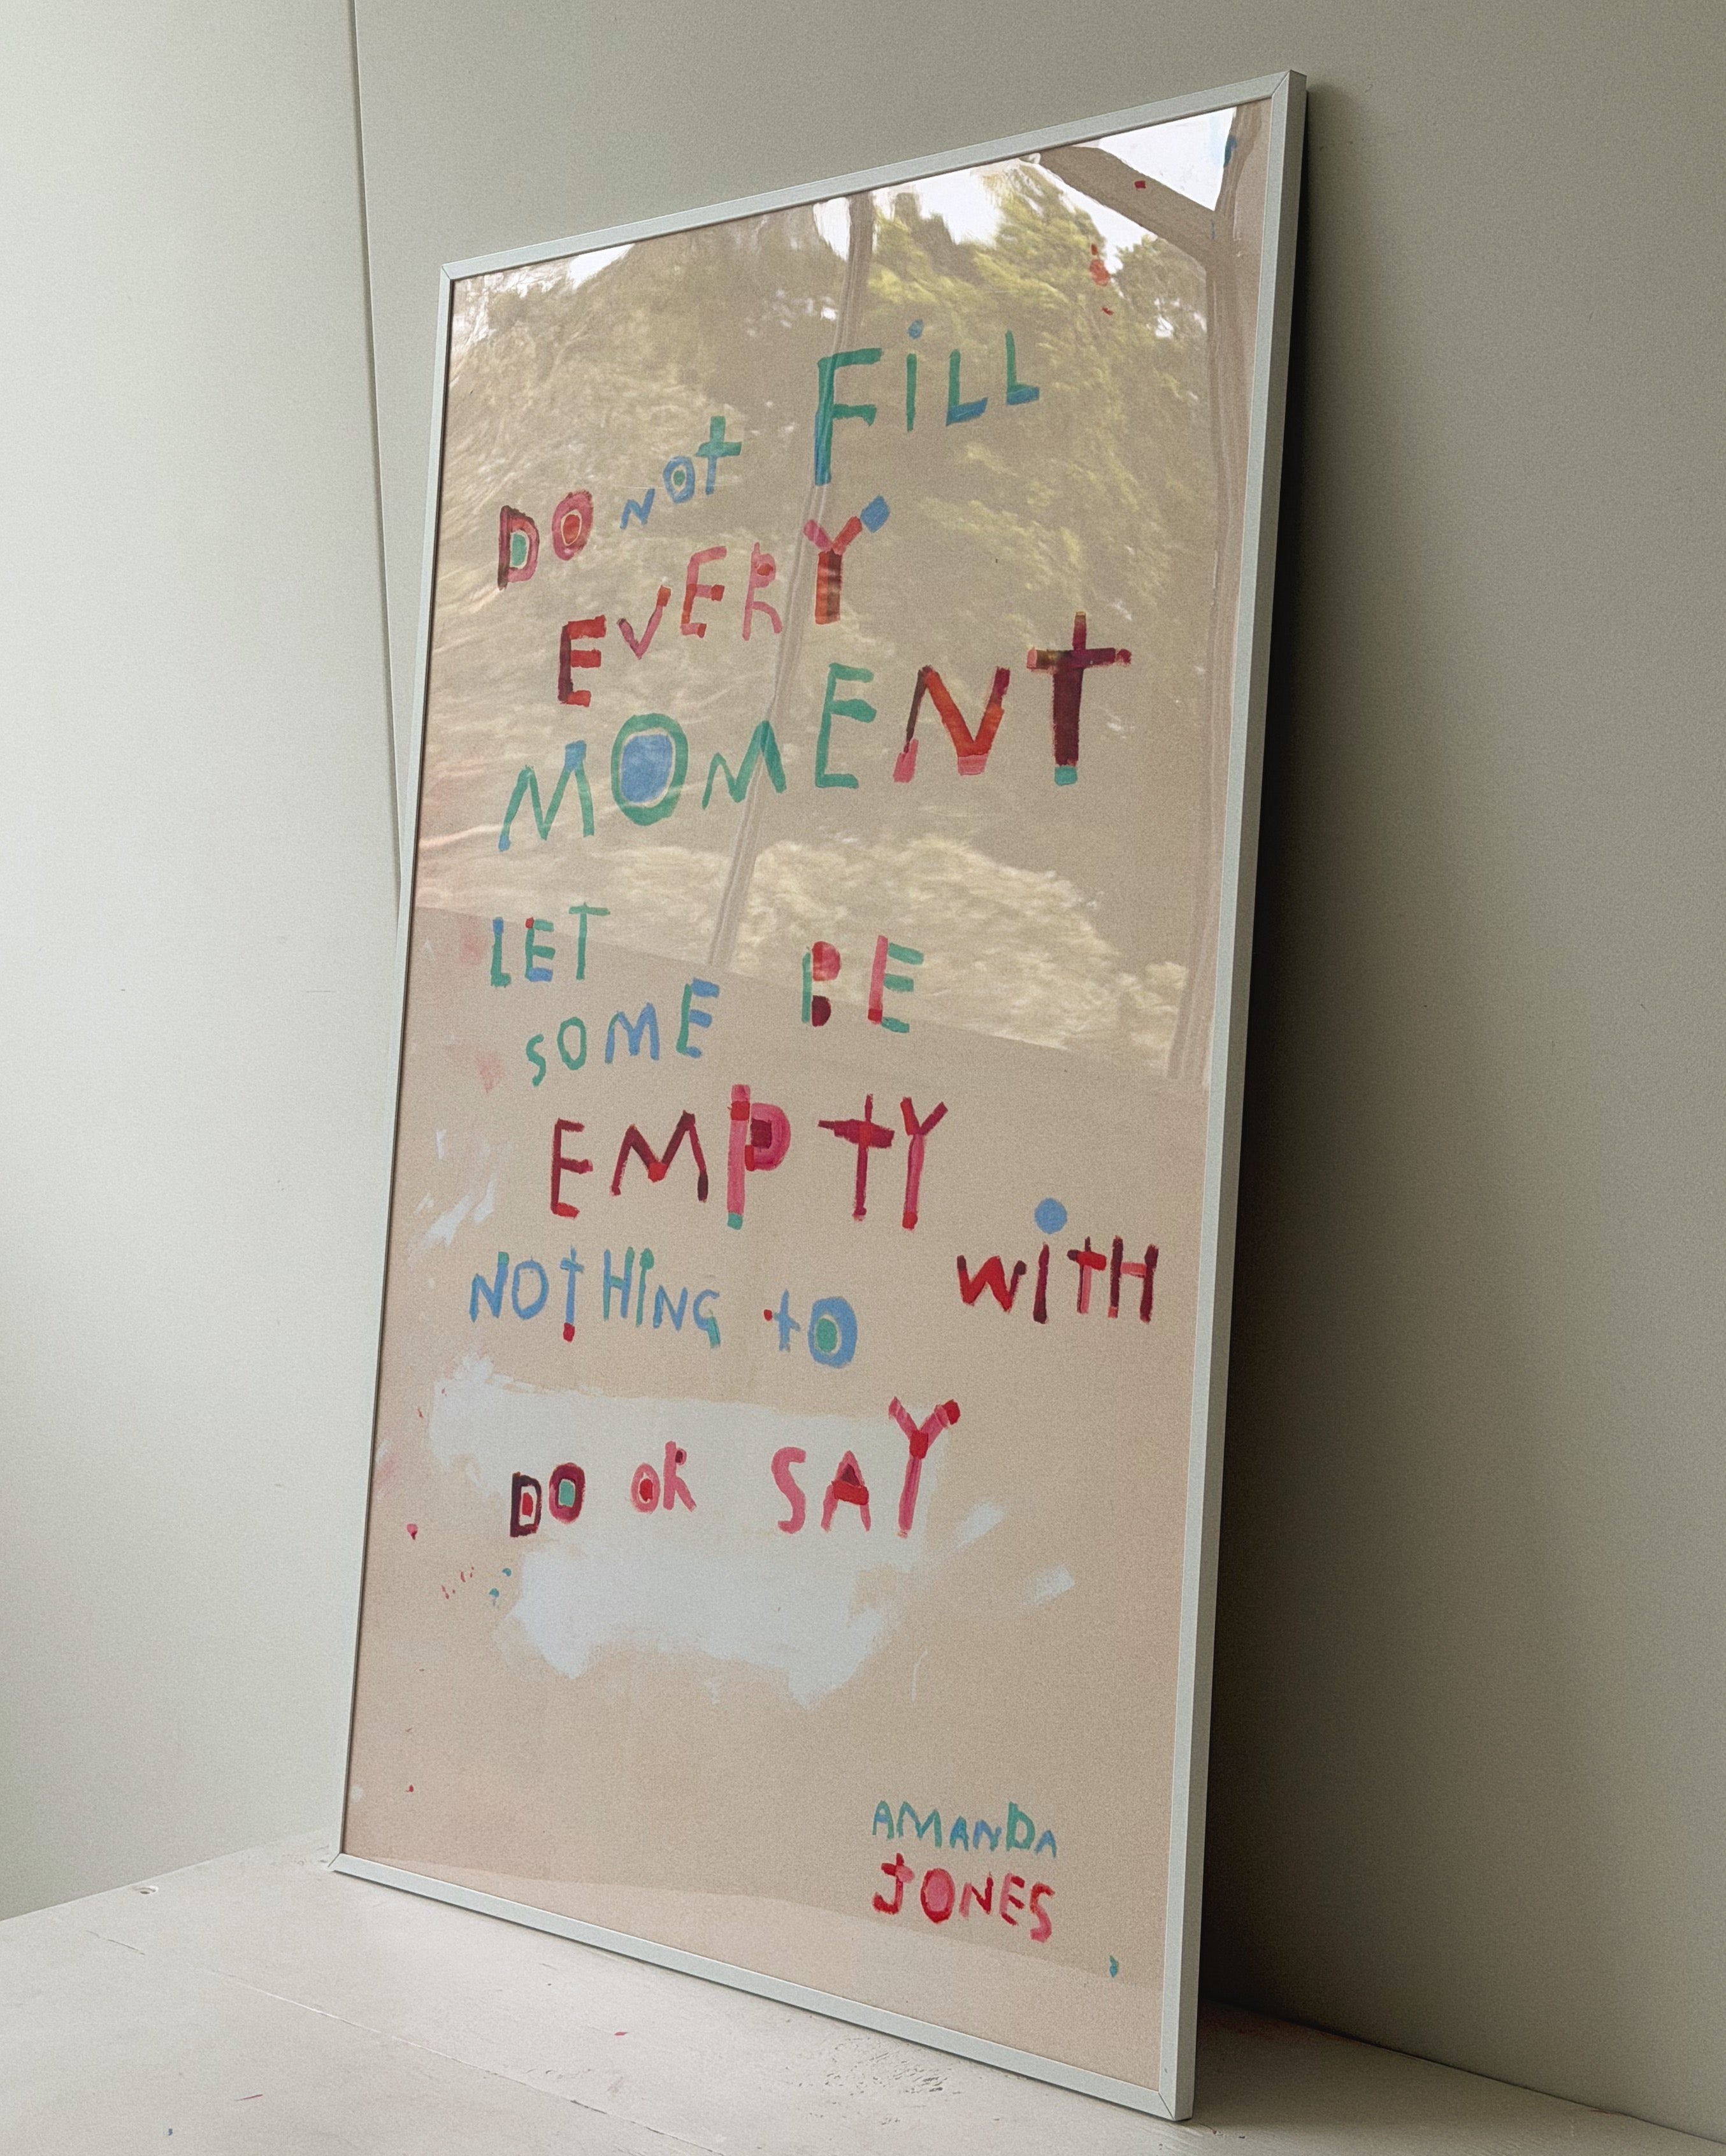 DO NOT FiLL
EVERY
MOMENT
LET
SOME BE
EMPTY
NOTHiNG TO WiTH
DO OR SAY
AMANDA
JONES